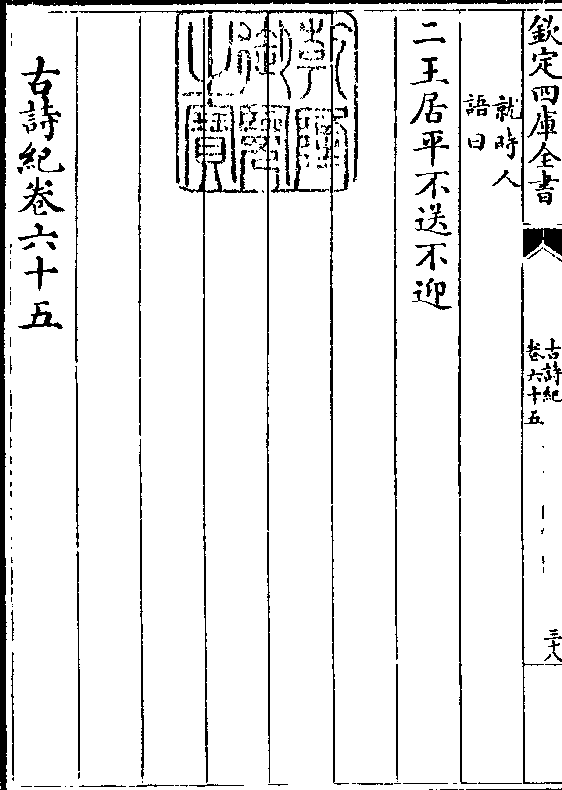 欽定四庫全書
古詩紀
卷六十五
三十八
就時人
語曰
二王居平不送不迎
乾隆
御覽
之寶
古詩紀卷六十五